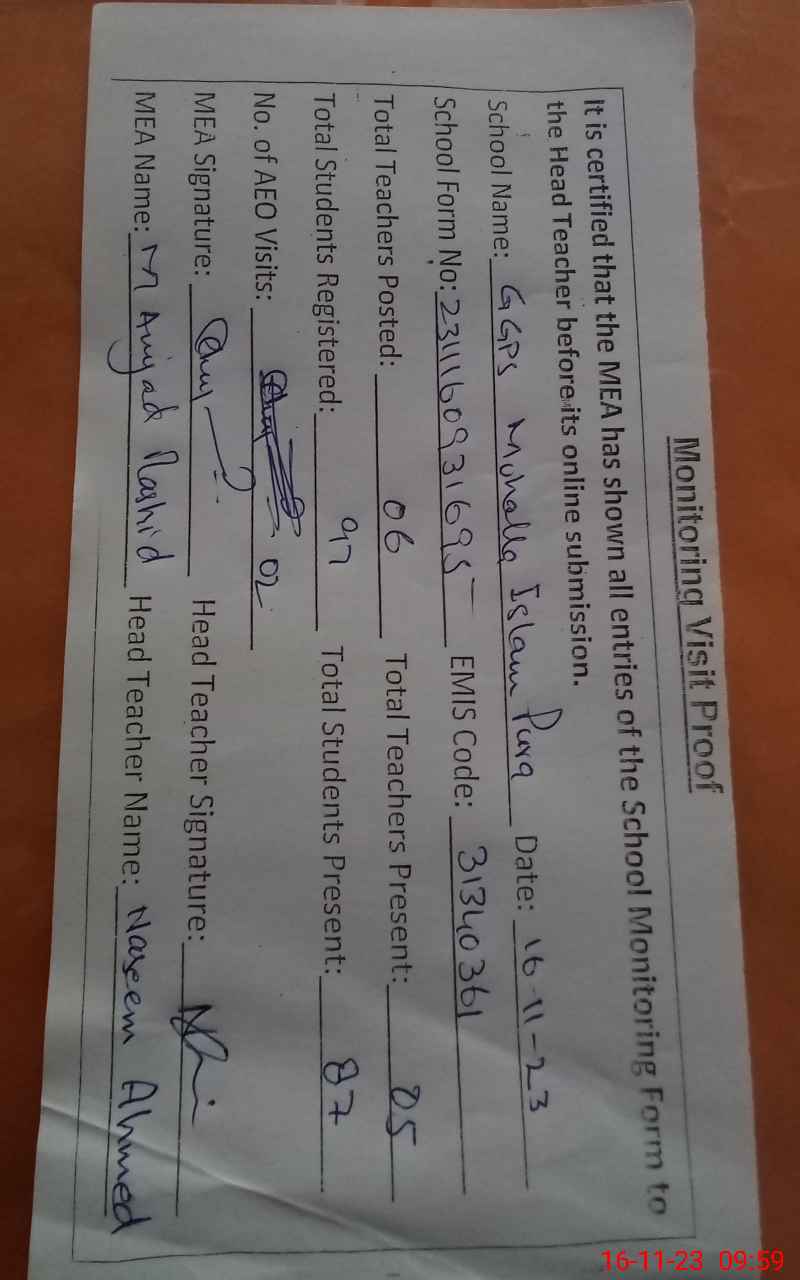 Monitoring Visit Proof
It is certified that the MEA has shown all entries of the School Monitoring Form to
the Head Teacher before its online submission.
School Name: GGPS Mohalla Islam Pura Date: 16-11-23
School Form No: 2311160931695 EMIS Code: 31340361
Total Teachers Posted: 06 Total Teachers Present: 05
Total Students Registered: 97 Total Students Present: 87
No. of AEO Visits: 02
MEA Signature: Head Teacher Signature:
MEA Name: M Amjad Rashid Head Teacher Name: Naseem Ahmed
16-11-23 09:59